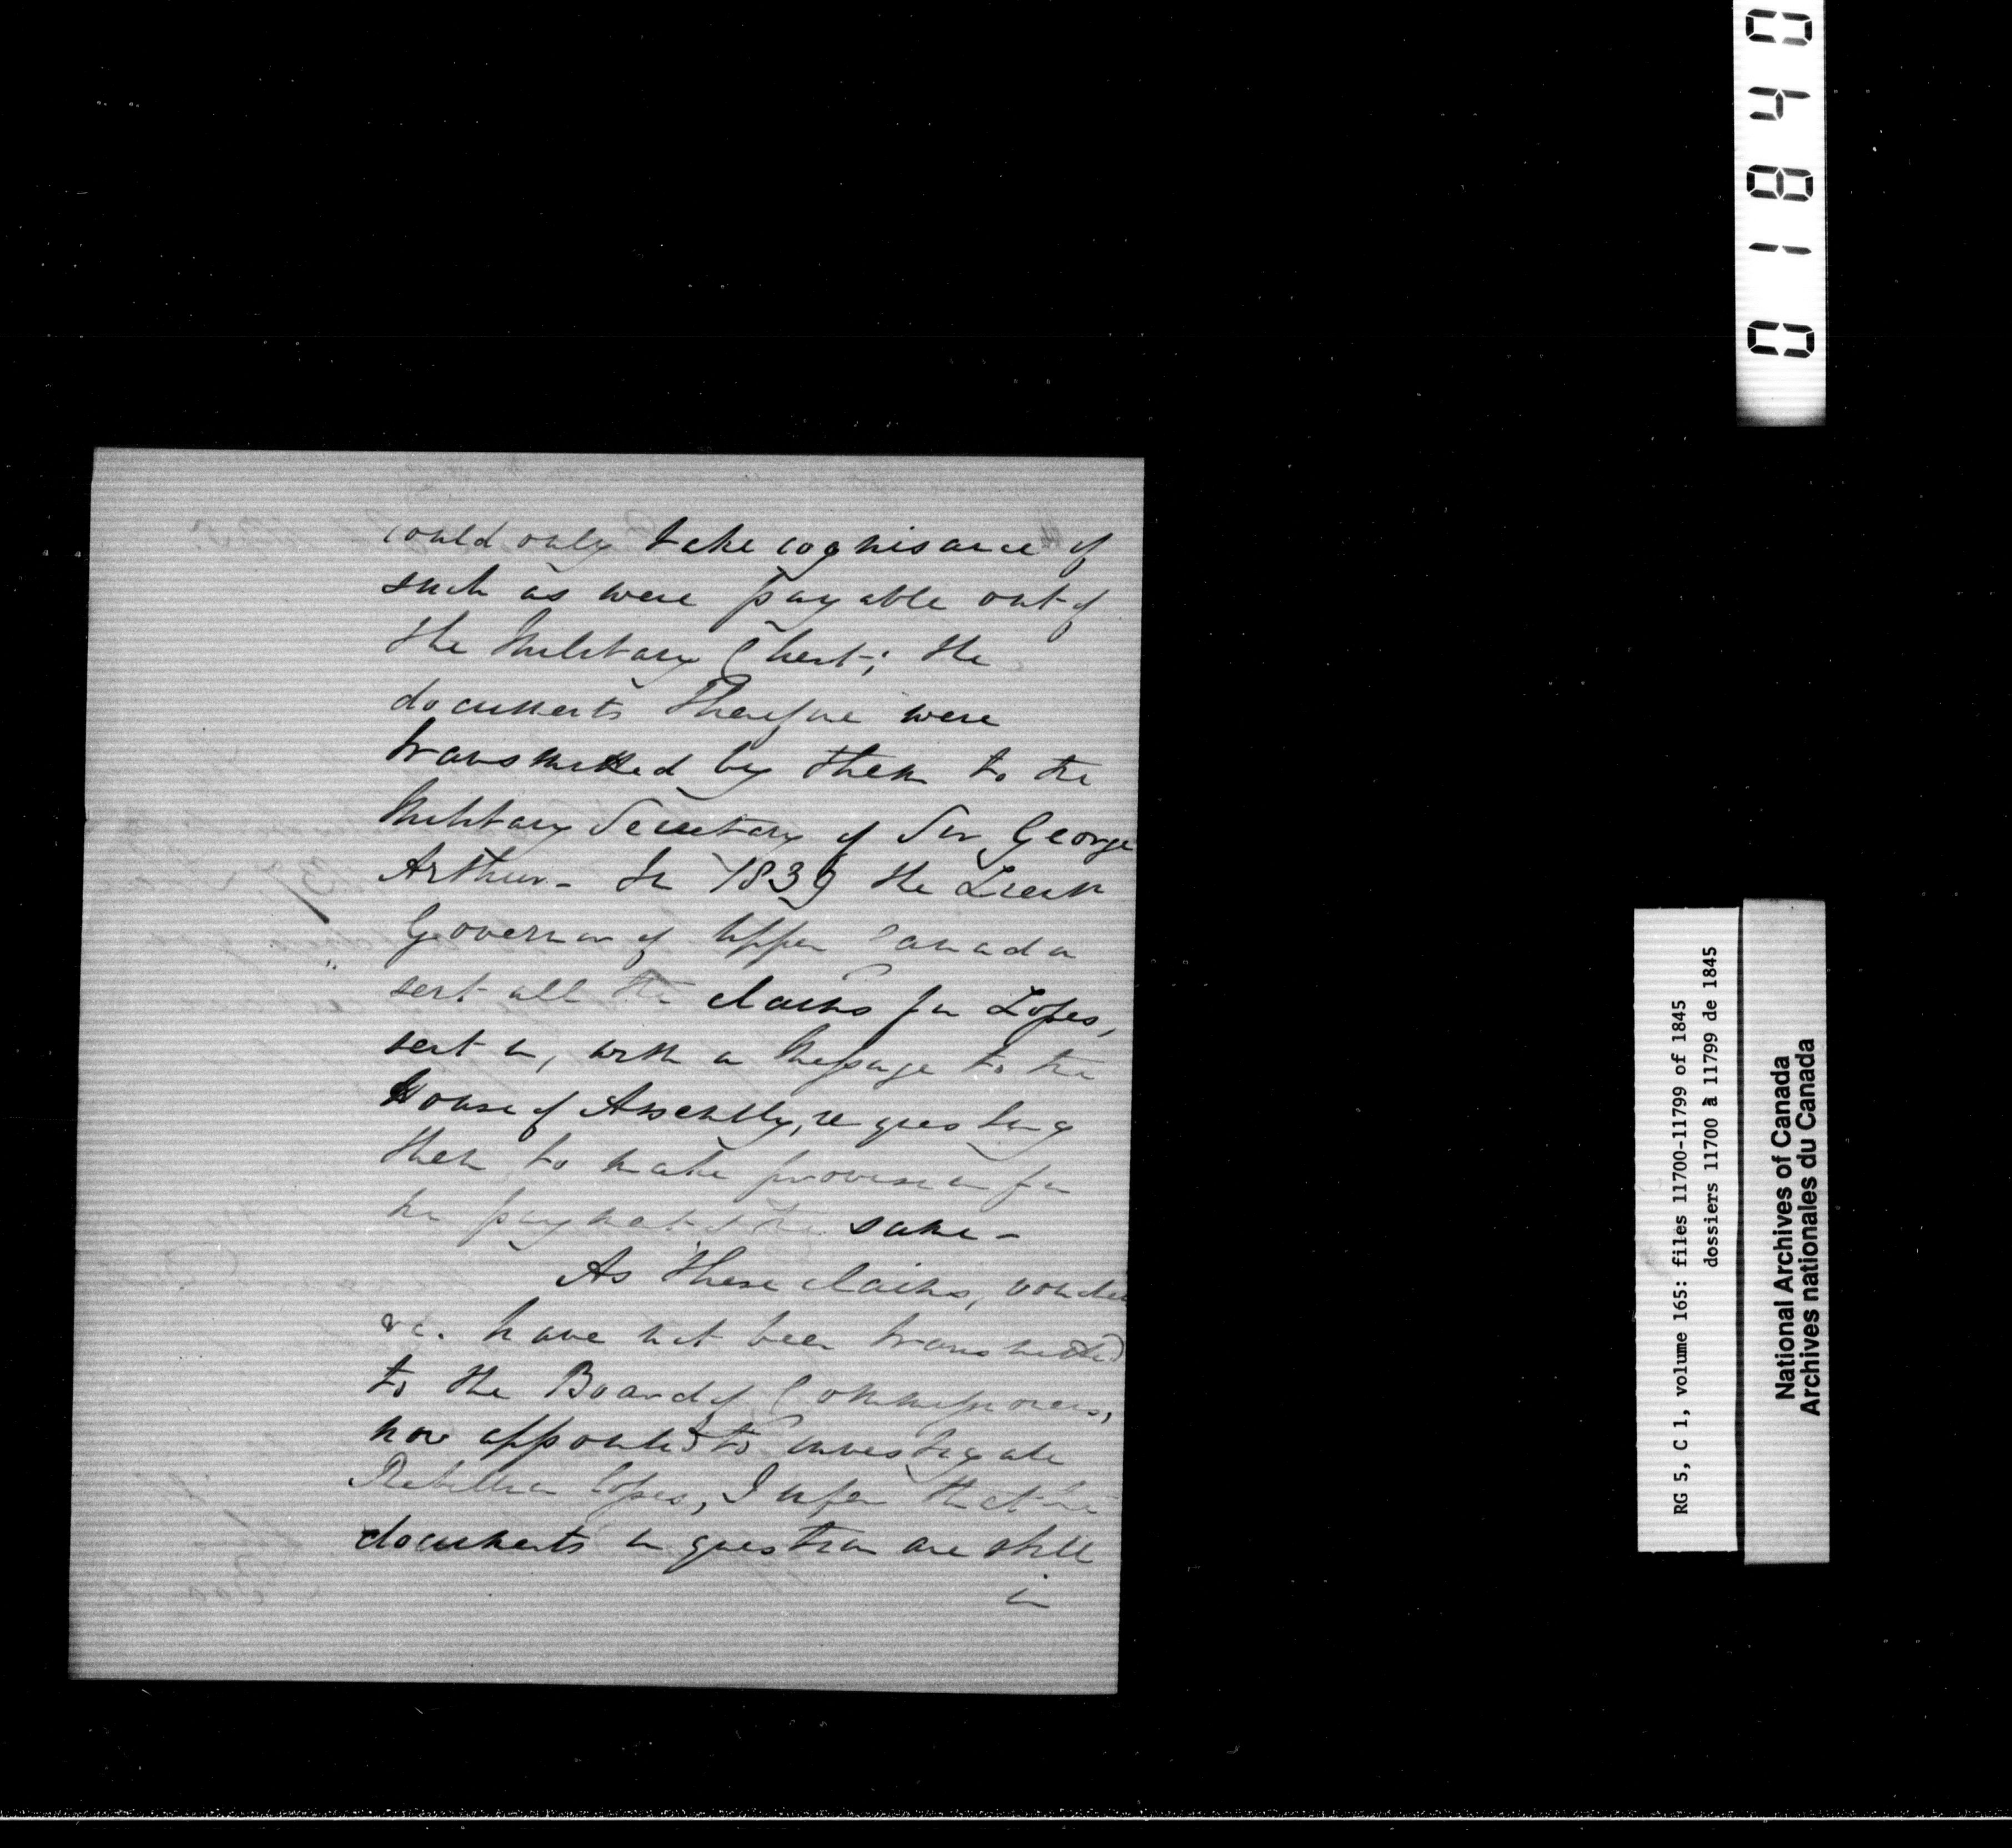 could only take cognisance of
such as were payable out of
the Military Chest; the
documents therefore were
transmitted by them to the
Military Secretary of Sir George
Arthur - In 1839 the Lieut
Governor of Upper Canada
sent all the claims for Losses,
sent in, with a Message to the
House of Assembly, requesting
them to make provision for
the payment of the same -
As these claims, vouchers
&c. have not been transmitted
to the Board of Commissioners,
now appointed to investigate
Rebellion losses, I infer that the
documents in question are still
in
01840
RG 5, C 1, volume 165: files 11700-11799 of 1845
dossiers 11700 à 11799 de 1845
National Archives of Canada
Archives nationales du Canada